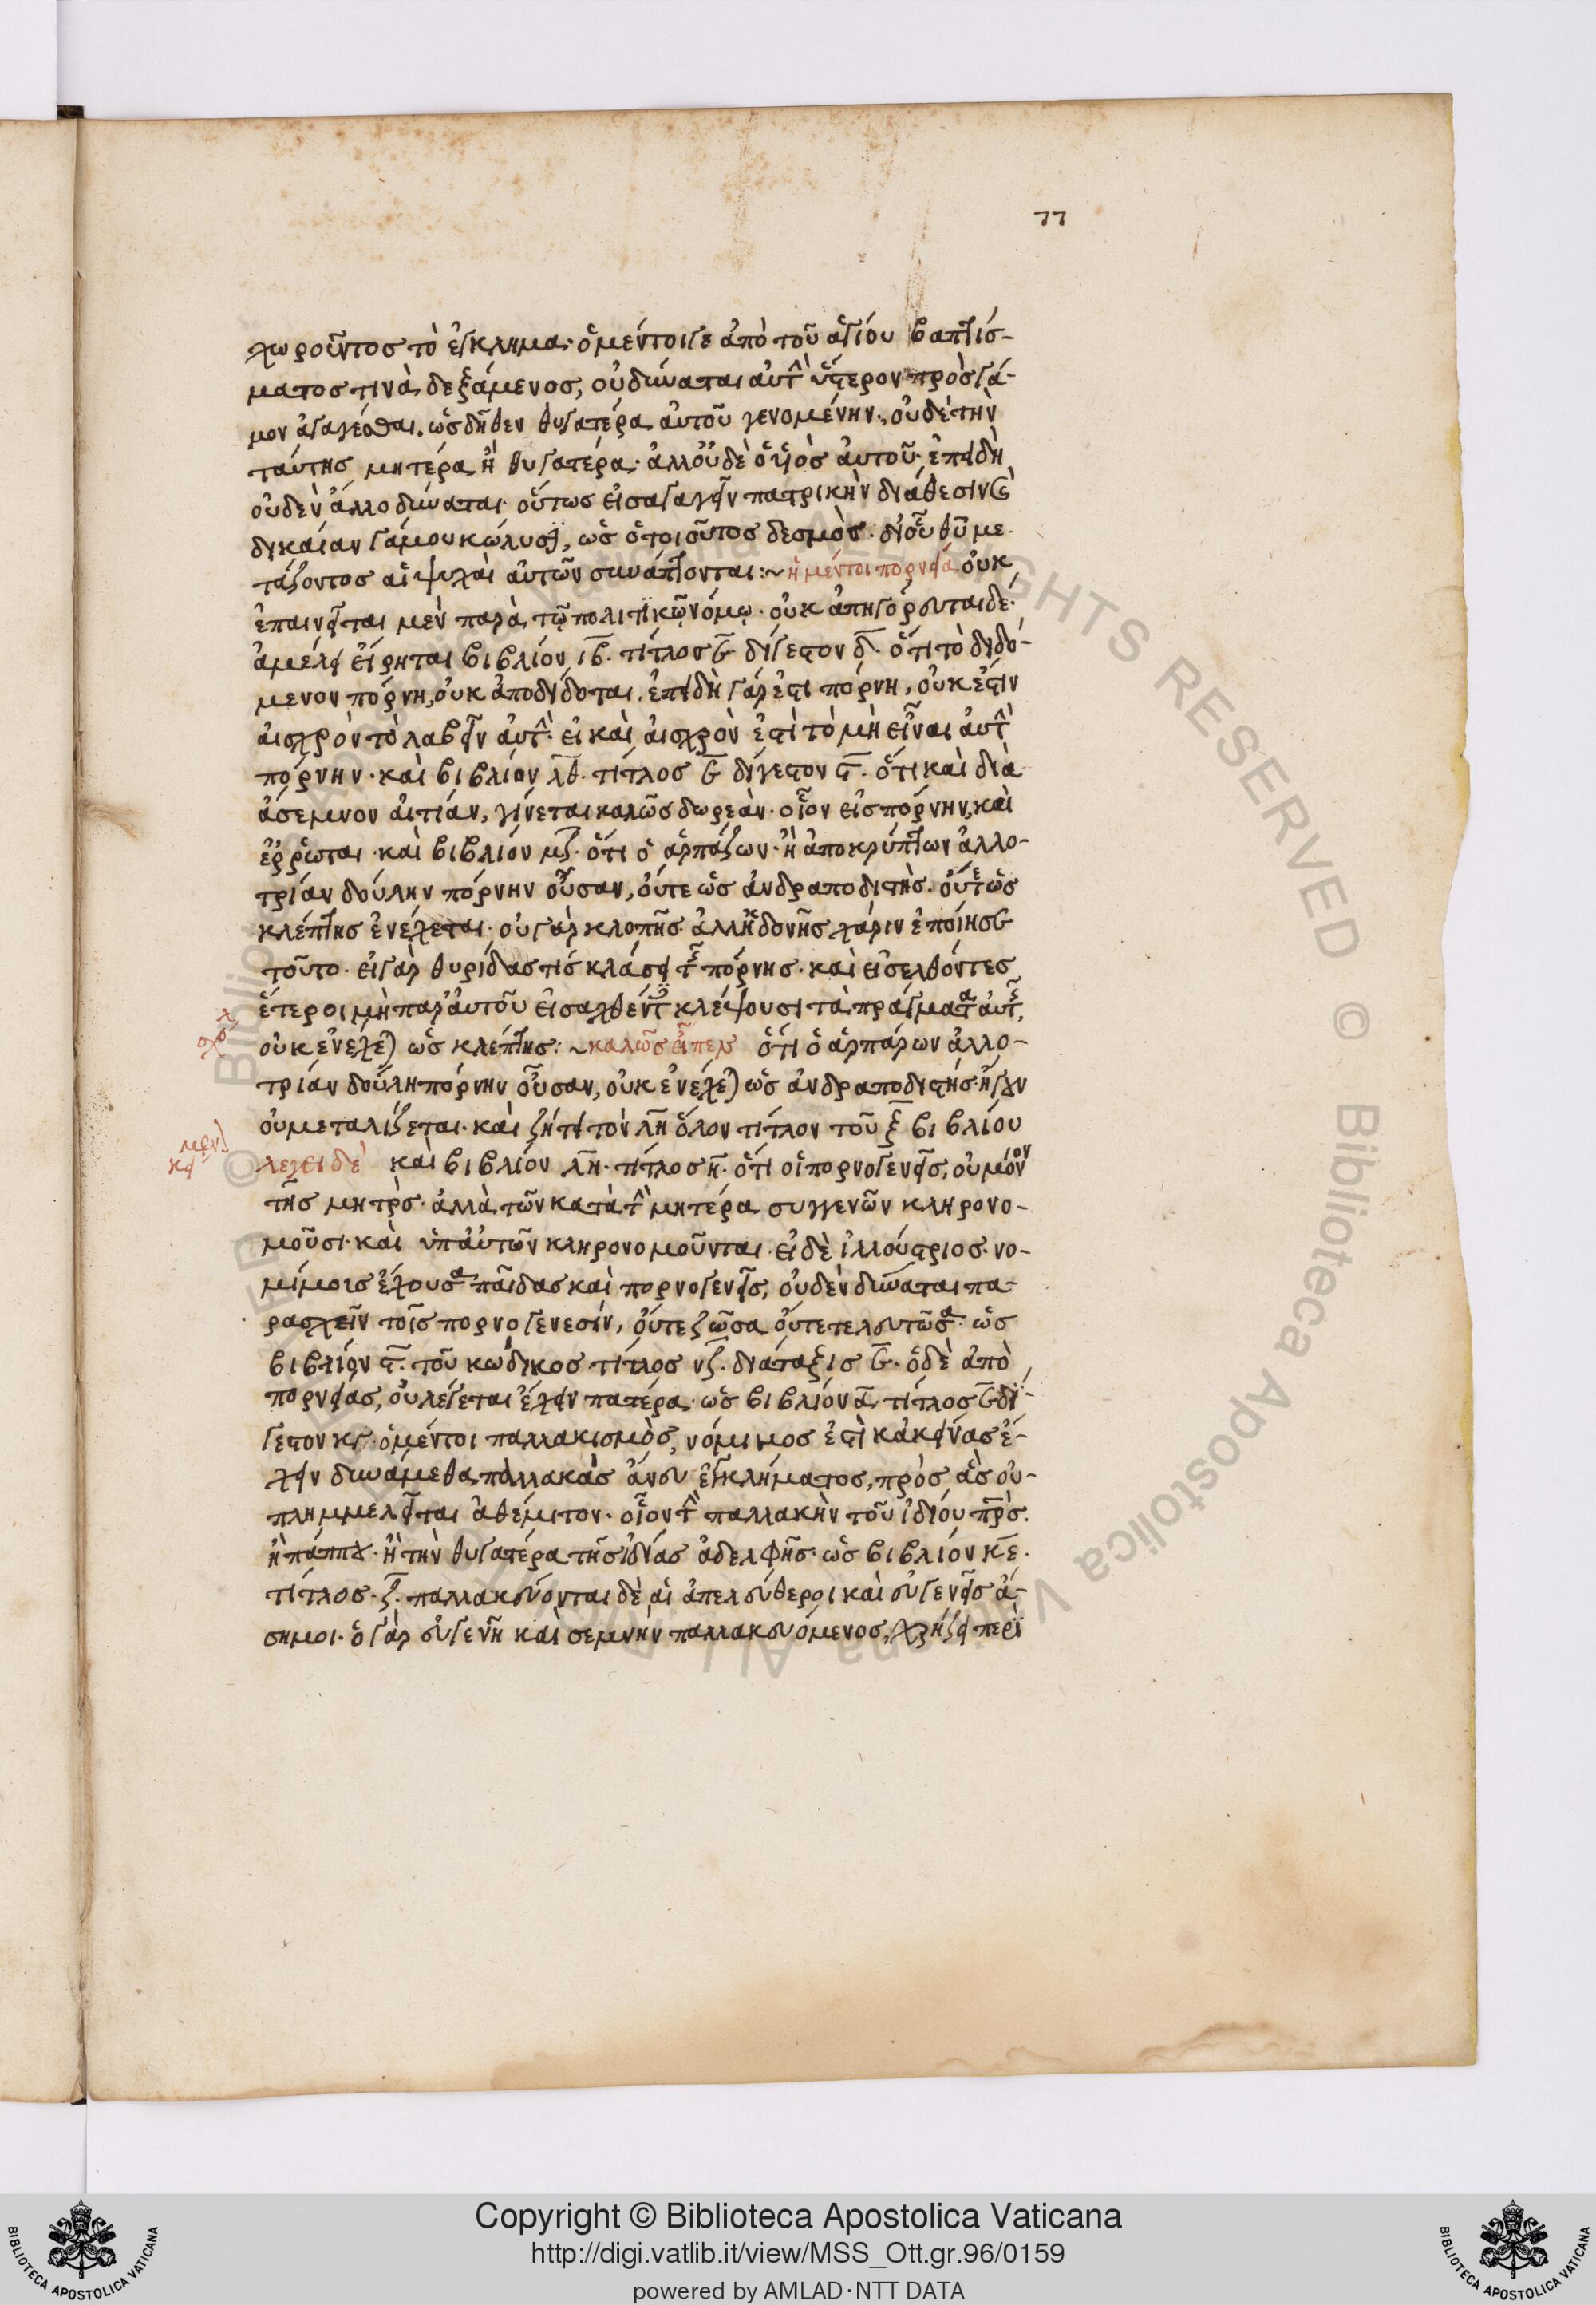 77
χωροῦντος τὸ ἔγκλημα· ὁ μέντοιγε ἀπὸ τοῦ ἁγίου βαπτίσ-
ματος τινὰ δεξάμενος, οὐ δύναται αὐτὴν ὕστερον πρὸς γά-
μον ἀγαγέσθαι. ὡς δῆθεν θυγατέρα αὐτοῦ γενομένην· οὐδὲ τὴν
ταύτης μητέρα ἢ θυγατέρα· ἀλλ' οὐδὲ ὁ υἱὸς αὐτοῦ· ἐπειδὴ
οὐδὲν ἄλλο δύναται οὕτως εἰσαγαγεῖν πατρικὴν διάθεσιν καὶ
δικαίαν γάμου κώλυσιν, ὡς ὁ τοιοῦτος δεσμὸς. δι' οὗ θῡ με-
τάζοντος αἱ ψυχαὶ αὐτῶν συνάπτονται:~ ἡ μέντοι πορνεία οὐκ
ἐπαινεῖται μὲν παρὰ τῷ πολιτικῷ νόμῳ. οὐκ ἀπηγόρευται δὲ.
ἀμέλει εἴρηται βιβλίον ιβ̄. τίτλος β̄ δίγεστον δ̄. ὅτι τὸ διδό-
μενον πόρνη, οὐκ ἀποδίδοται. ἐπειδὴ γάρ ἐστι πόρνη, οὐκ ἔστιν
αἰσχρὸν τὸ λαβεῖν αὐτὴν. εἰ καὶ αἰσχρὸν ἐστὶ τὸ μὴ εἶναι αὐτὴν
πόρνην. καὶ βιβλίον λθ̄. τίτλος β̄ δίγεστον ϛ̄. ὅτι καὶ διὰ
ἄσεμνον αἰτίαν, γίνεται καλῶς δωρεὰν. οἷον εἰς πόρνην, καὶ
ἔρρωται. καὶ βιβλίον μζ̄. ὅτι ὁ ἁρπάζων. ἢ ἀποκρύπτων ἀλλο-
τρίαν δούλην πόρνην οὖσαν, οὔτε ὡς ἀνδραποδιστὴς. οὔτε ὡς
κλέπτης ἐνέχεται. οὐ γὰρ κλοπῆς ἀλλ' ἡδονῆς χάριν ἐποίησε
τοῦτο. εἰ γὰρ θυρίδας τίς κλάσει τῆς πόρνης. καὶ εἰσελθόντες
ἕτεροι μὴ παρ' αὐτοῦ εἰσαχθέντες κλέψουσι τὰ πράγματα αὐτῆς,
οὐκ ἐνέχεται ὡς κλέπτης:~ καλῶς εἶπεν ὅτι ὁ ἁρπάρων ἀλλο-
τρίαν δούλη πόρνην οὖσαν, οὐκ ἐνέχεται ὡς ἀνδραποδιστής. ἤγουν
οὐ μεταλίζεται. καὶ ζήτει τὸν λη̄ ὅλον τίτλον τοῦ ξ̄ βιβλίου
κεί
μεν
λέγει δὲ καὶ βιβλίον λη̄. τίτλος η̄. ὅτι οἱ πορνογενεῖς, οὐ μόνον
τῆς μητρὸς. ἀλλὰ τῶν κατὰ τὴν μητέρα συγγενῶν κληρονο-
μοῦσι. καὶ ὑπ' αὐτῶν κληρονομοῦνται. εἰ δὲ ἰλλούστριος. νο-
μίμοις ἔχουσα παῖδας καὶ πορνογενεῖς, οὐδὲν δύναται πα-
ρασχεῖν τοῖς πορνογένεσιν, οὔτε ζῶσα οὔτε τελευτῶσα. ὡς
βιβλίον ϛ̄. τοῦ κώδικος τίτλος νζ̄. διάταξις β̄. ὁ δὲ ἀπὸ
πορνείας, οὐ λέγεται ἔχειν πατέρα. ὡς βιβλίον ᾱ. τίτλος β̄ δί-
γεστον κγ. ὁ μέντοι παλλακισμὸς, νόμιμος ἐστὶ κἀκείνας ἔ-
χειν δυνάμεθα παλλακὰς ἄνευ ἐγκλήματος, πρὸς ἃς οὐ
πλημμελεῖται ἀθέμιτον. οἷον τὴν παλλακὴν τοῦ ἰδίου πρ̄ς.
ἢ πάππου. ἢ τὴν θυγατέρα τῆς ἰδίας ἀδελφῆς. ὡς βιβλίον κε̄.
τίτλος. ζ̄. παλλακεύονται δὲ αἱ ἀπελεύθεροι καὶ εὐγενεῖς ἄ-
σημοι. ὁ γὰρ εὐγενῆ καὶ σεμνὴν παλλακευόμενος, χρήζει περὶ